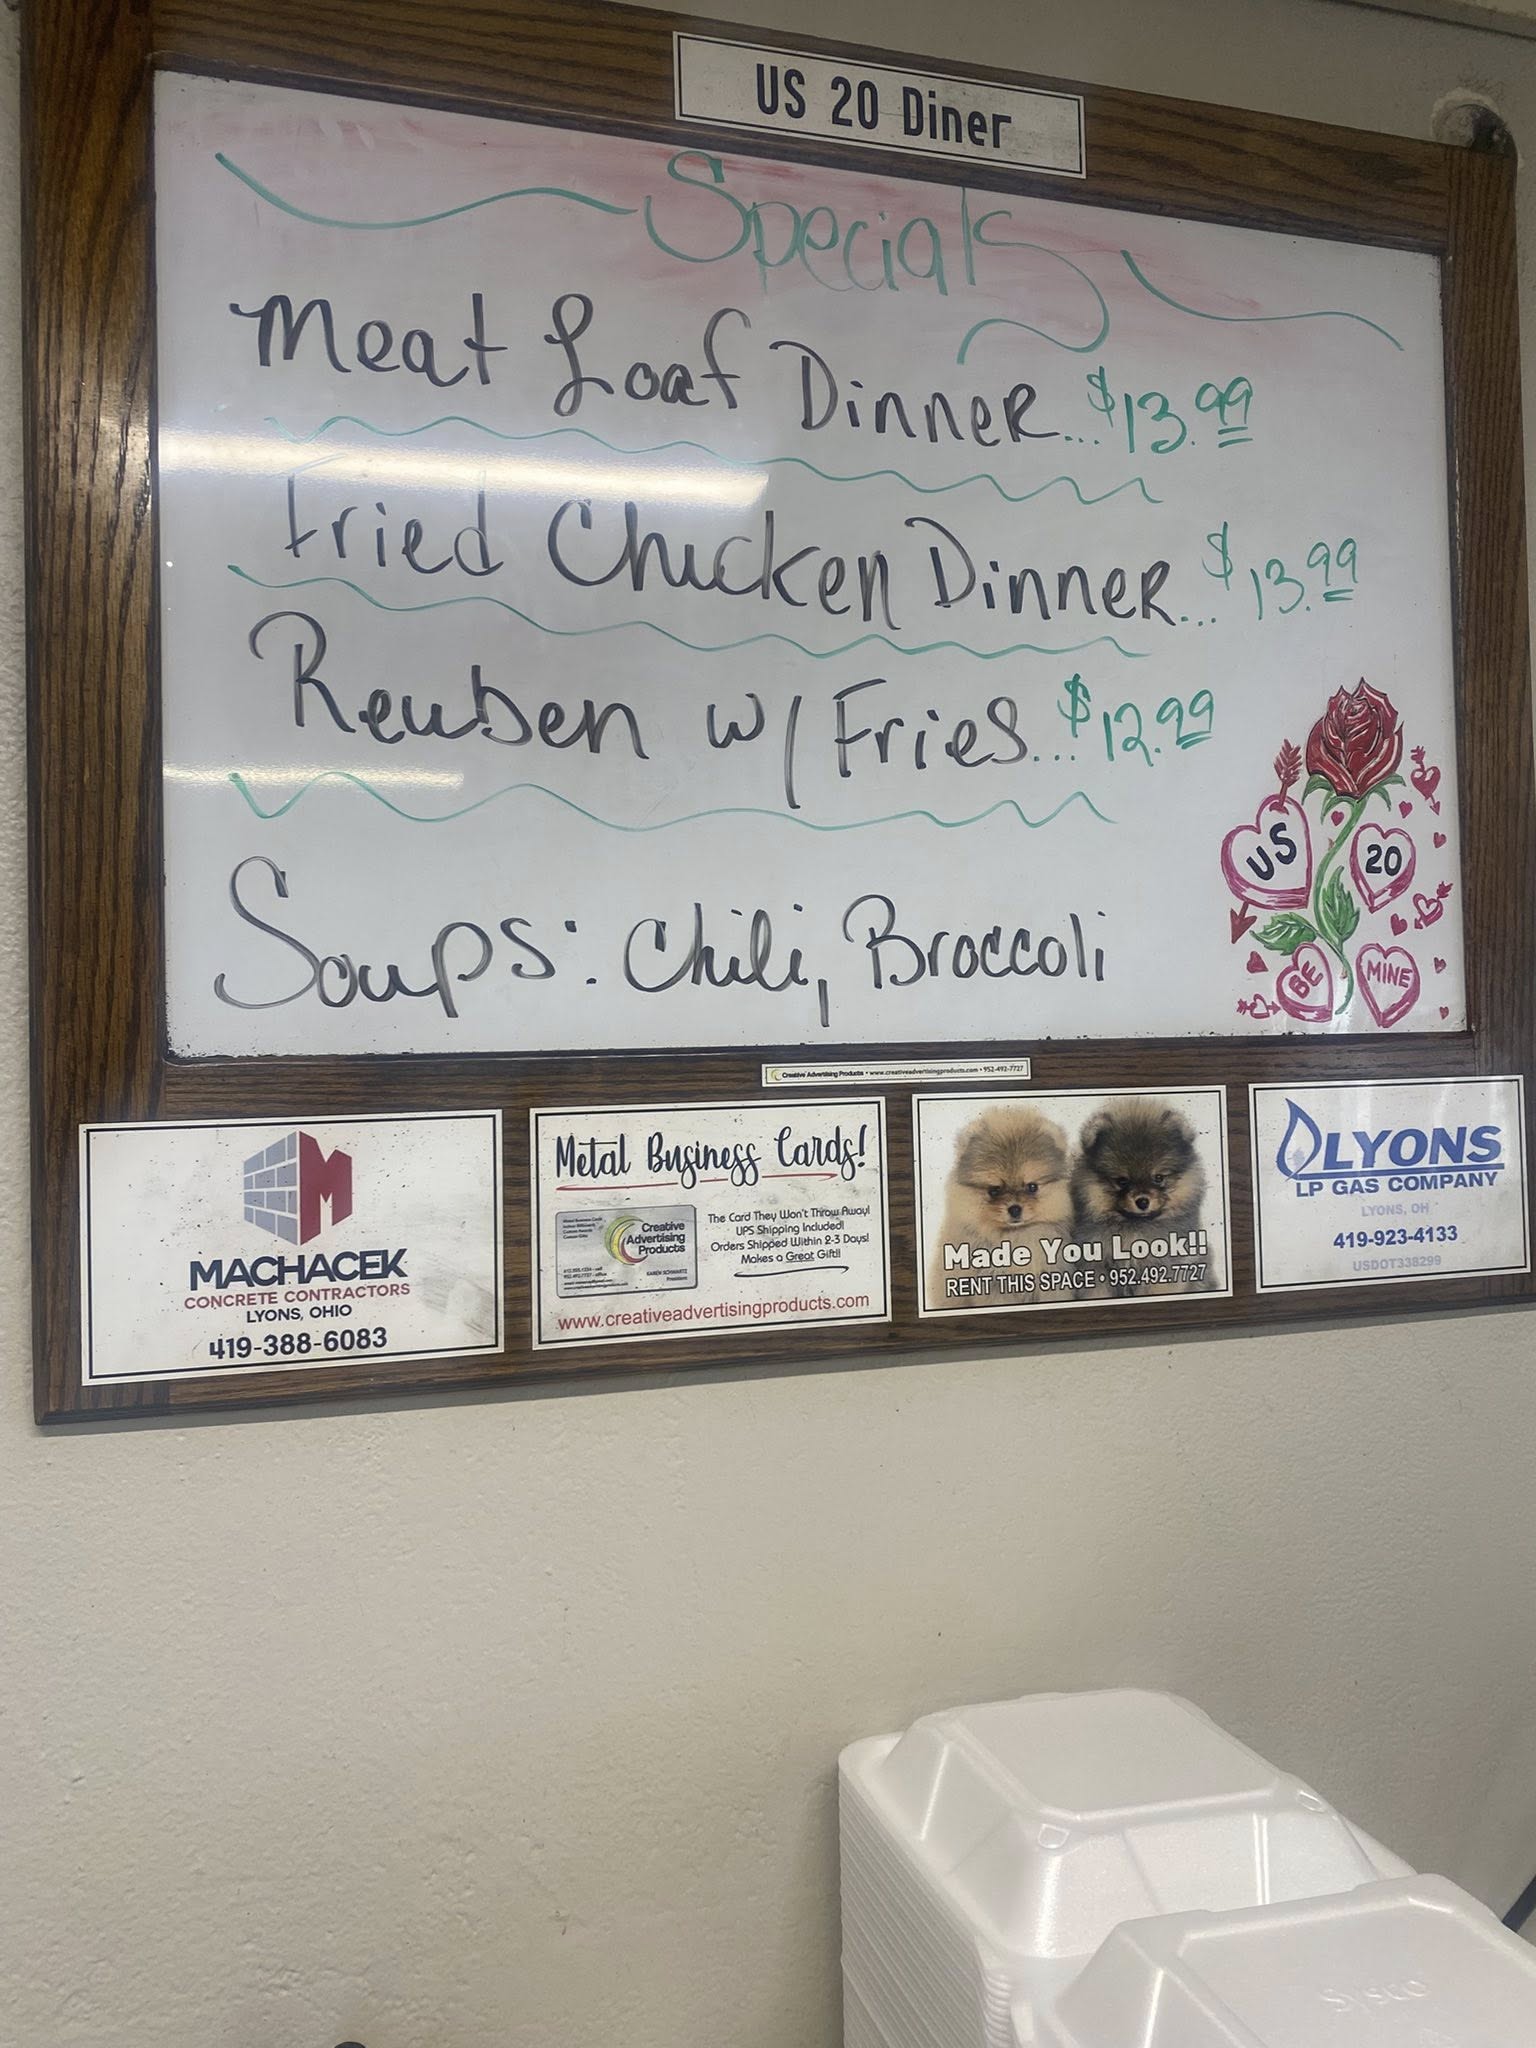 US 20 Diner
Specials
Meat Loaf Dinner... $13.99
Fried Chicken Dinner... $13.99
Reuben w/ Fries... $12.99
Soups: Chili, Broccoli
US
20
BE
MINE
Creative Advertising Products • www.creativeadvertisingproducts.com • 952-492-7727
M
MACHACEK
CONCRETE CONTRACTORS
LYONS, OHIO
419-388-6083
Metal Business Cards!
Creative
Advertising
Products
KAREN SCHWARTZ
President
The Card They Won't Throw Away!
UPS Shipping Included!
Orders Shipped Within 2-3 Days!
Makes a Great Gift!!
www.creativeadvertisingproducts.com
Made You Look!!
RENT THIS SPACE • 952.492.7727
LYONS
LP GAS COMPANY
LYONS, OH
419-923-4133
USDOT338299
Sysco